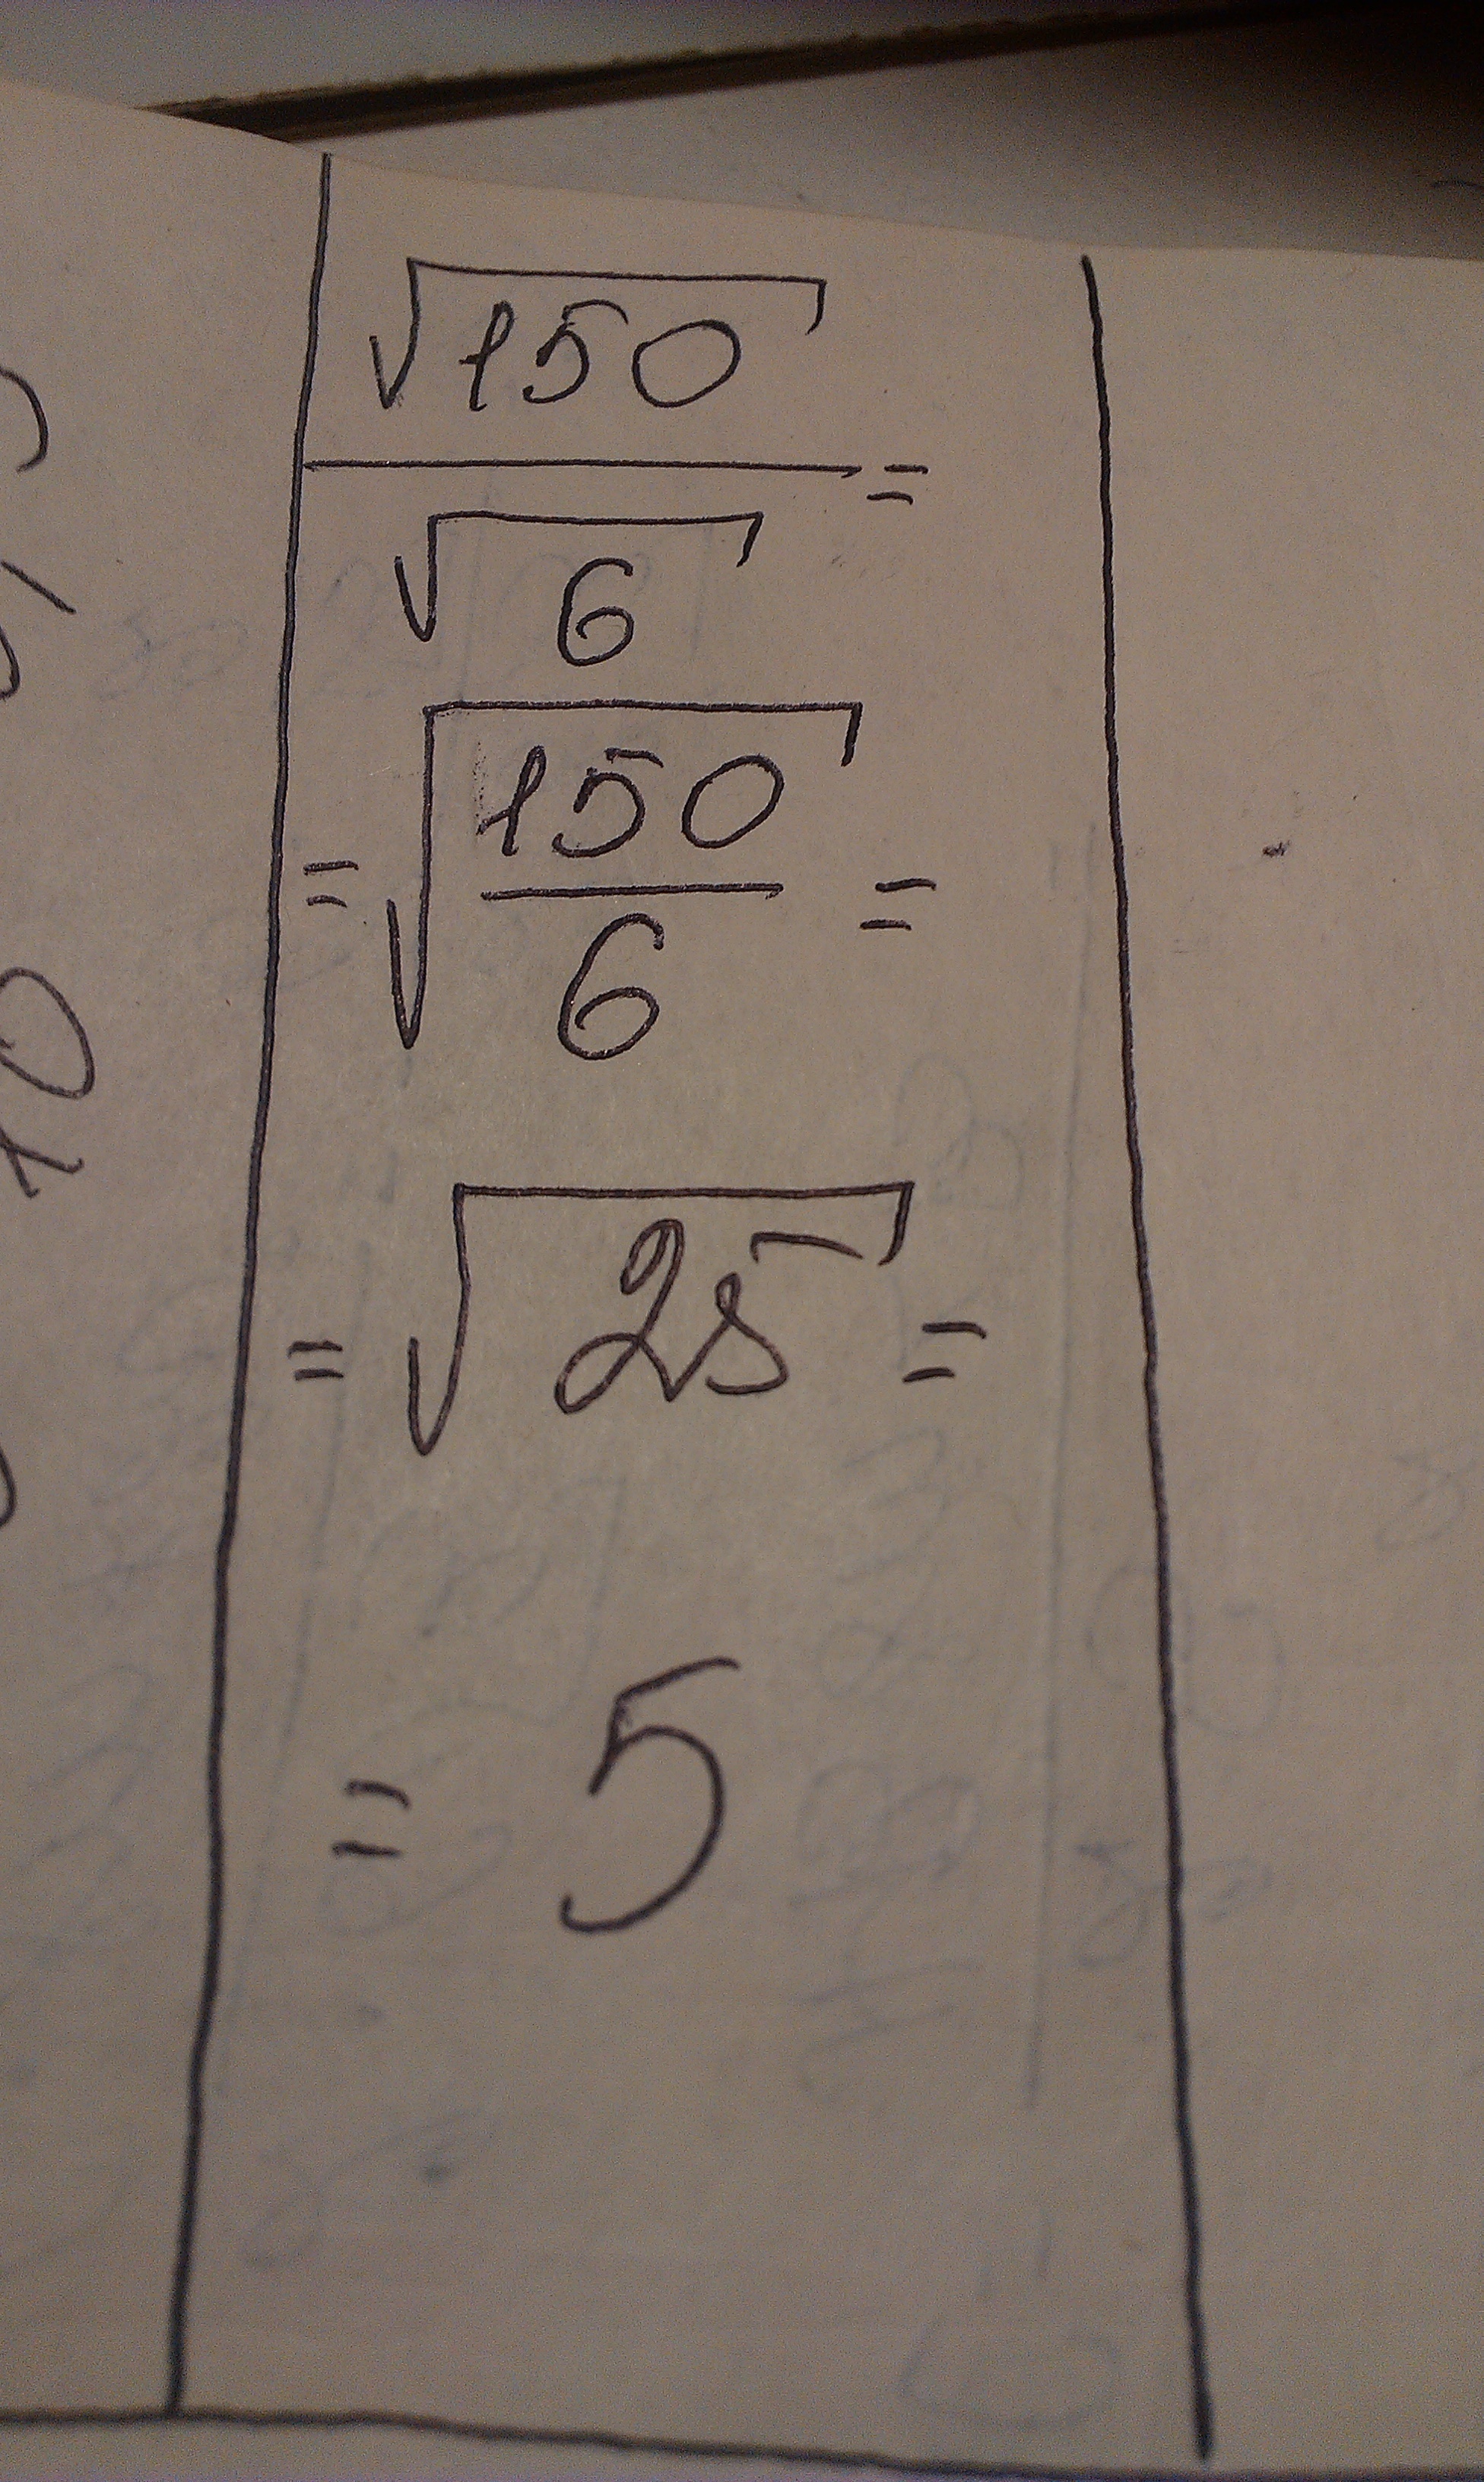 √150 / √6 =
= √(150/6) =
= √25 =
= 5